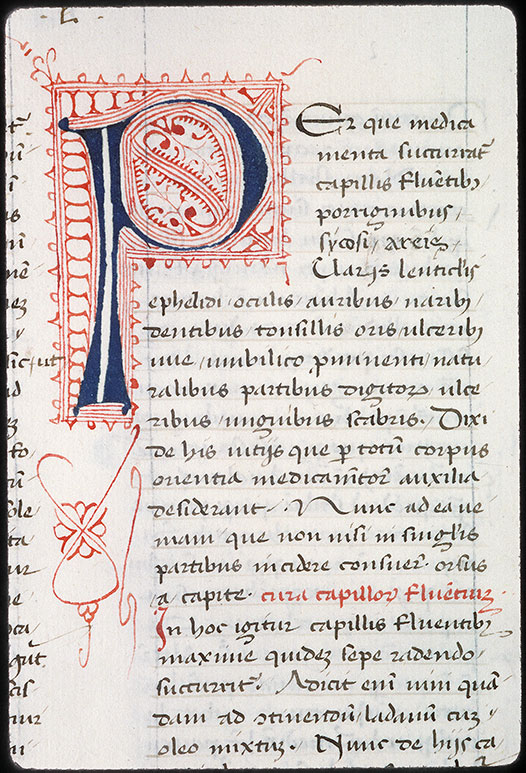 Per que medica
menta succurrat̃
capillis fluẽtibꝫ
porriginibus /
sycosi / areis
Uarijs lenticl̃is
ephelidi / oculis / auribus naribꝫ
dentibus tonsillis oris ulceribꝫ
uue / umbilico ꝓminenti / natu
ralibus partibus digitoꝝ / ulce
ribus / unguibus scabris. Dixi
de his uitijs que ꝑ totũ corpus
orientia medicam̃toꝝ auxilia
desiderant. Nunc ad ea ue
niam / que non nisi in singl̃is
partibus incidere consuer̃. orsus
a capite. cura capilloꝝ fluẽtiuꝫ.
In hoc igitur capillis fluentibꝫ
maxime quideꝫ sepe radendo
succurrit̃. Adicit em̃ uim quã
dam ad ↄtinendũ ladanũ cuꝫ
oleo mixtuꝫ. Nunc de hijs ca